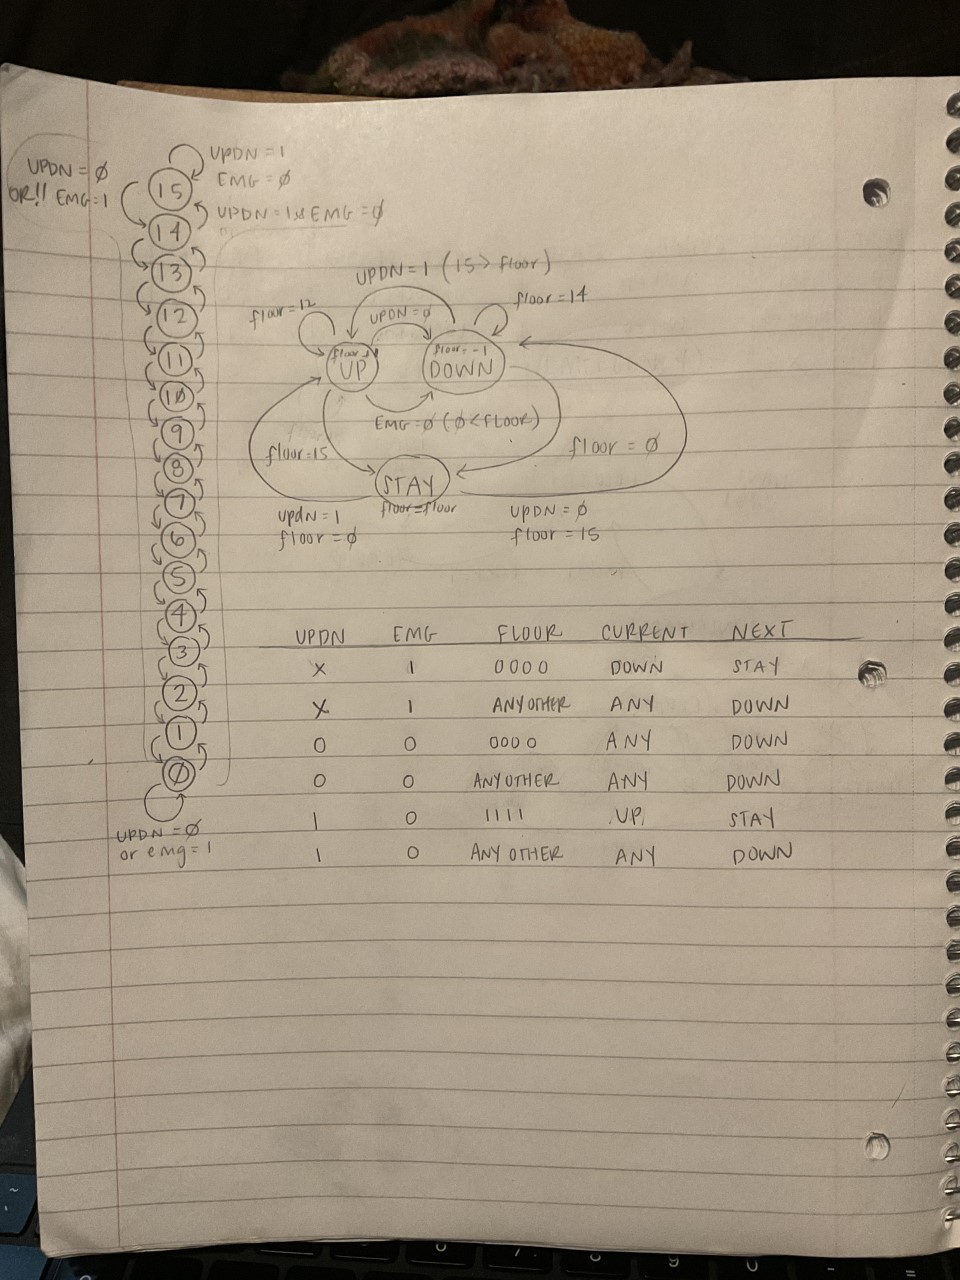 UPDN = 1
EMG = ø
UPDN = ø
OR!! EMG = 1
UPDN = 1 & EMG = ø
15
14
13
12
11
1ø
9
8
7
6
5
4
3
2
1
ø
UPDN = ø
or emg = 1
UPDN = 1 (15 > floor)
floor = 12
UPDN = ø
floor = 14
UP
floor = -1
DOWN
EMG = ø (ø < floor)
floor = 15
floor = ø
STAY
floor = floor
updN = 1
floor = ø
UPDN = ø
floor = 15
UPDN EMG FLOUR CURRENT NEXT
X 1 0000 DOWN STAY
X 1 ANY OTHER ANY DOWN
0 0 0000 ANY DOWN
0 0 ANY OTHER ANY DOWN
1 0 1111 UP STAY
1 0 ANY OTHER ANY DOWN